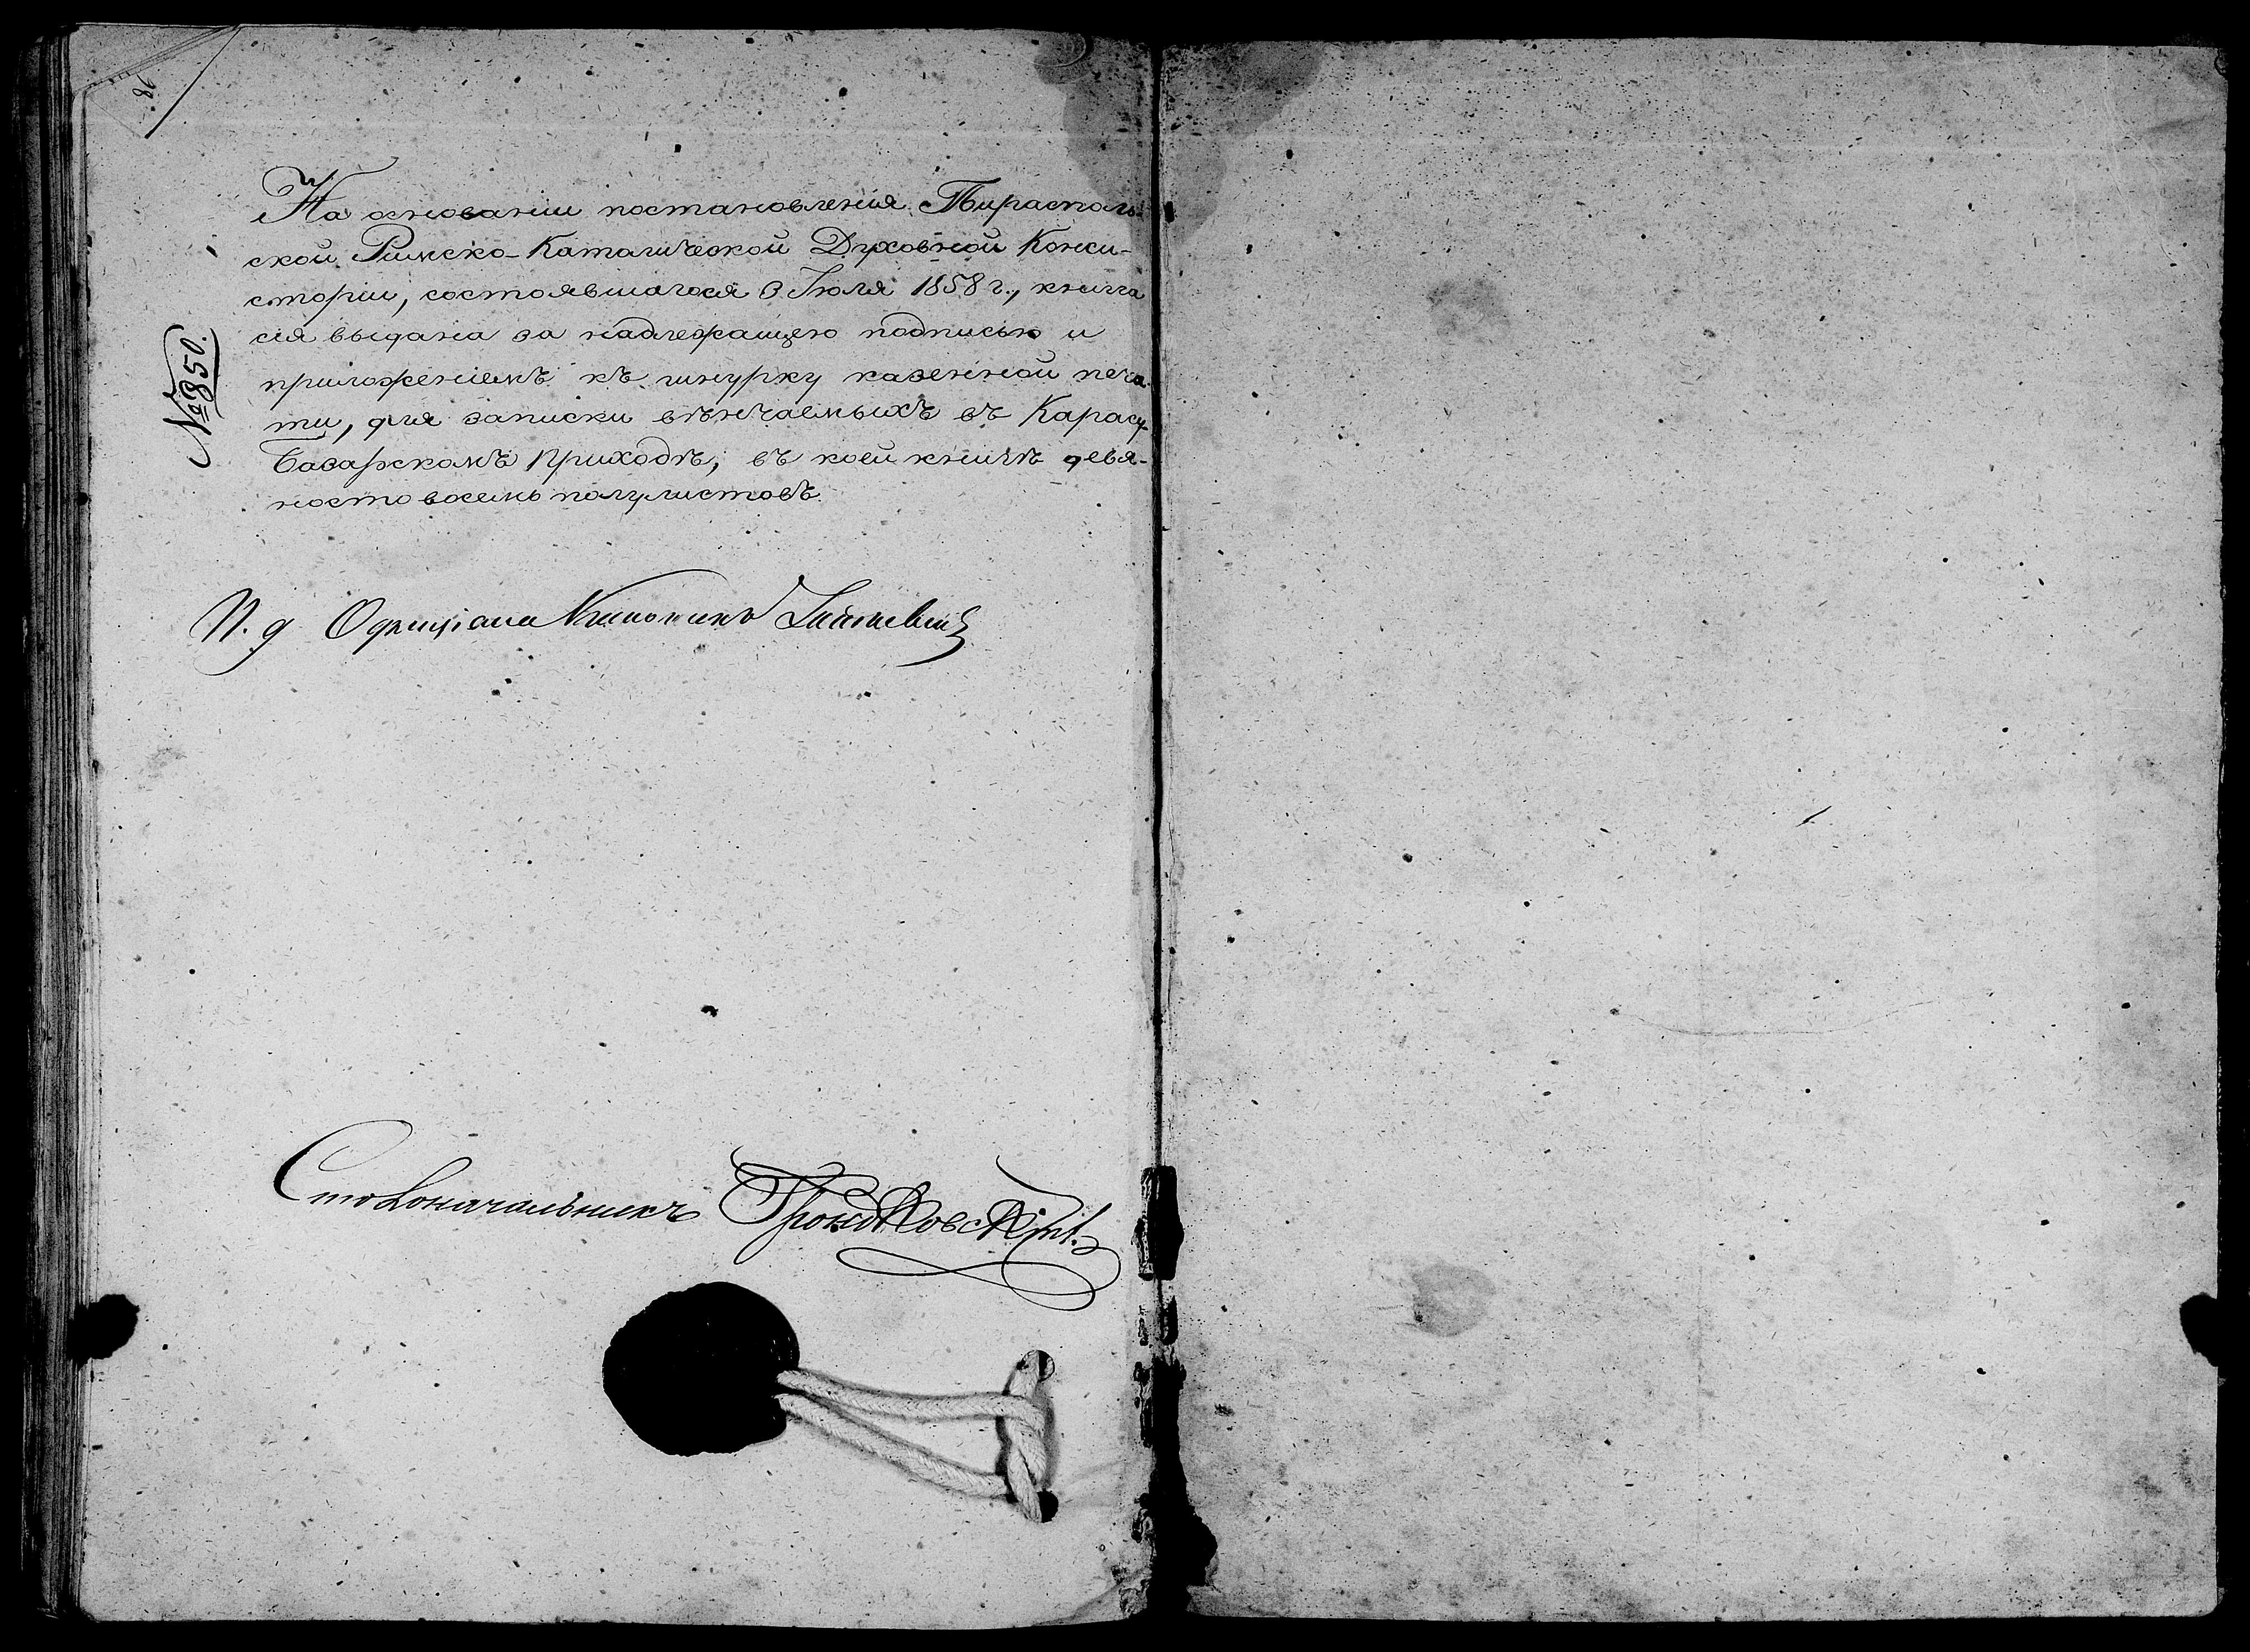 На основаніи постановленія Тирасполь-
ской Римско-Католической Духовной Конси-
сторіи, состоявшагося 3 Іюля 1858 г., книга
сія выдана за надлежащею подписью и
приложеніемъ къ шнурку казенной печа-
ти, для записки вѣнчаемыхъ въ Карасу-
Базарскомъ Приходѣ; въ коей книгѣ девя-
носто восемь полулистовъ.
№ 850.
П. д Оффиціала Каноникъ
Столоначальникъ